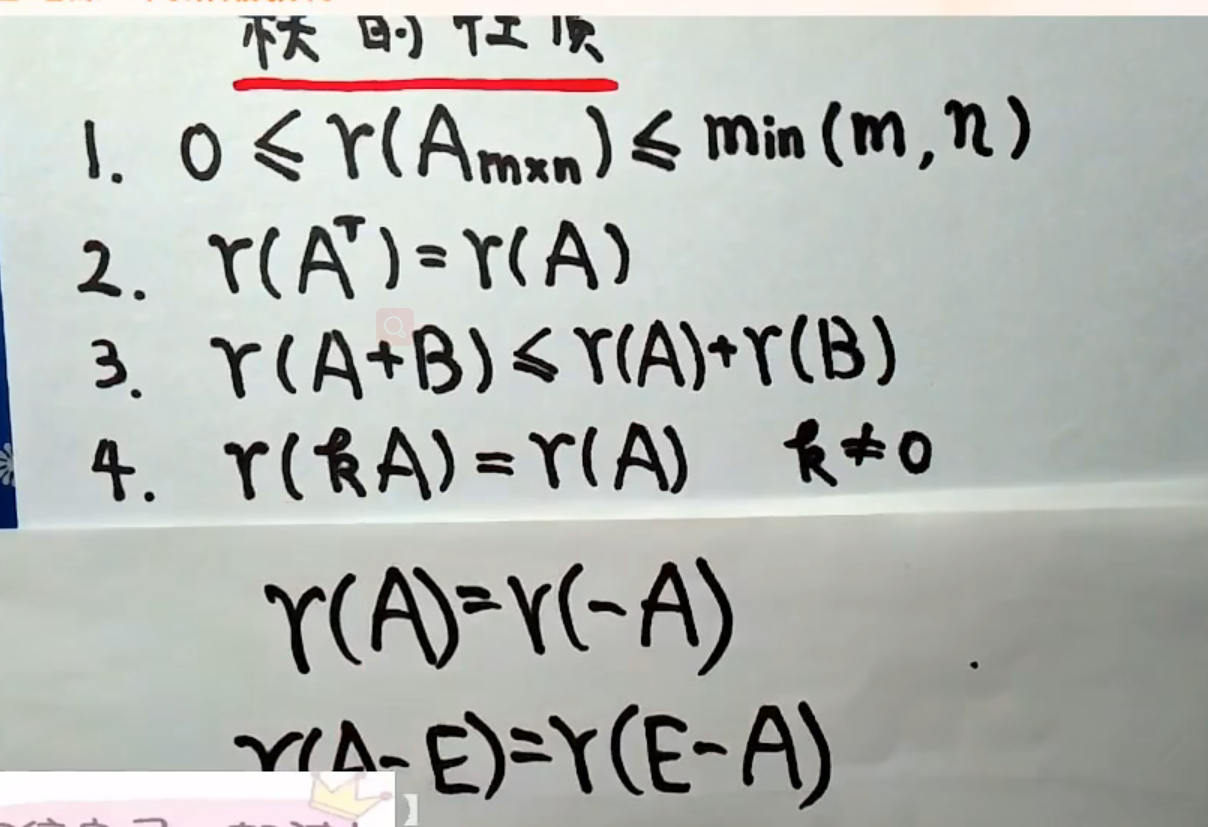 秩的性质
1. 0 ⩽ r(Aₘₓₙ) ⩽ min(m,n)
2. r(Aᵀ)=r(A)
3. r(A+B)⩽r(A)+r(B)
4. r(kA)=r(A) k≠0
r(A)=r(-A)
r(A-E)=r(E-A)